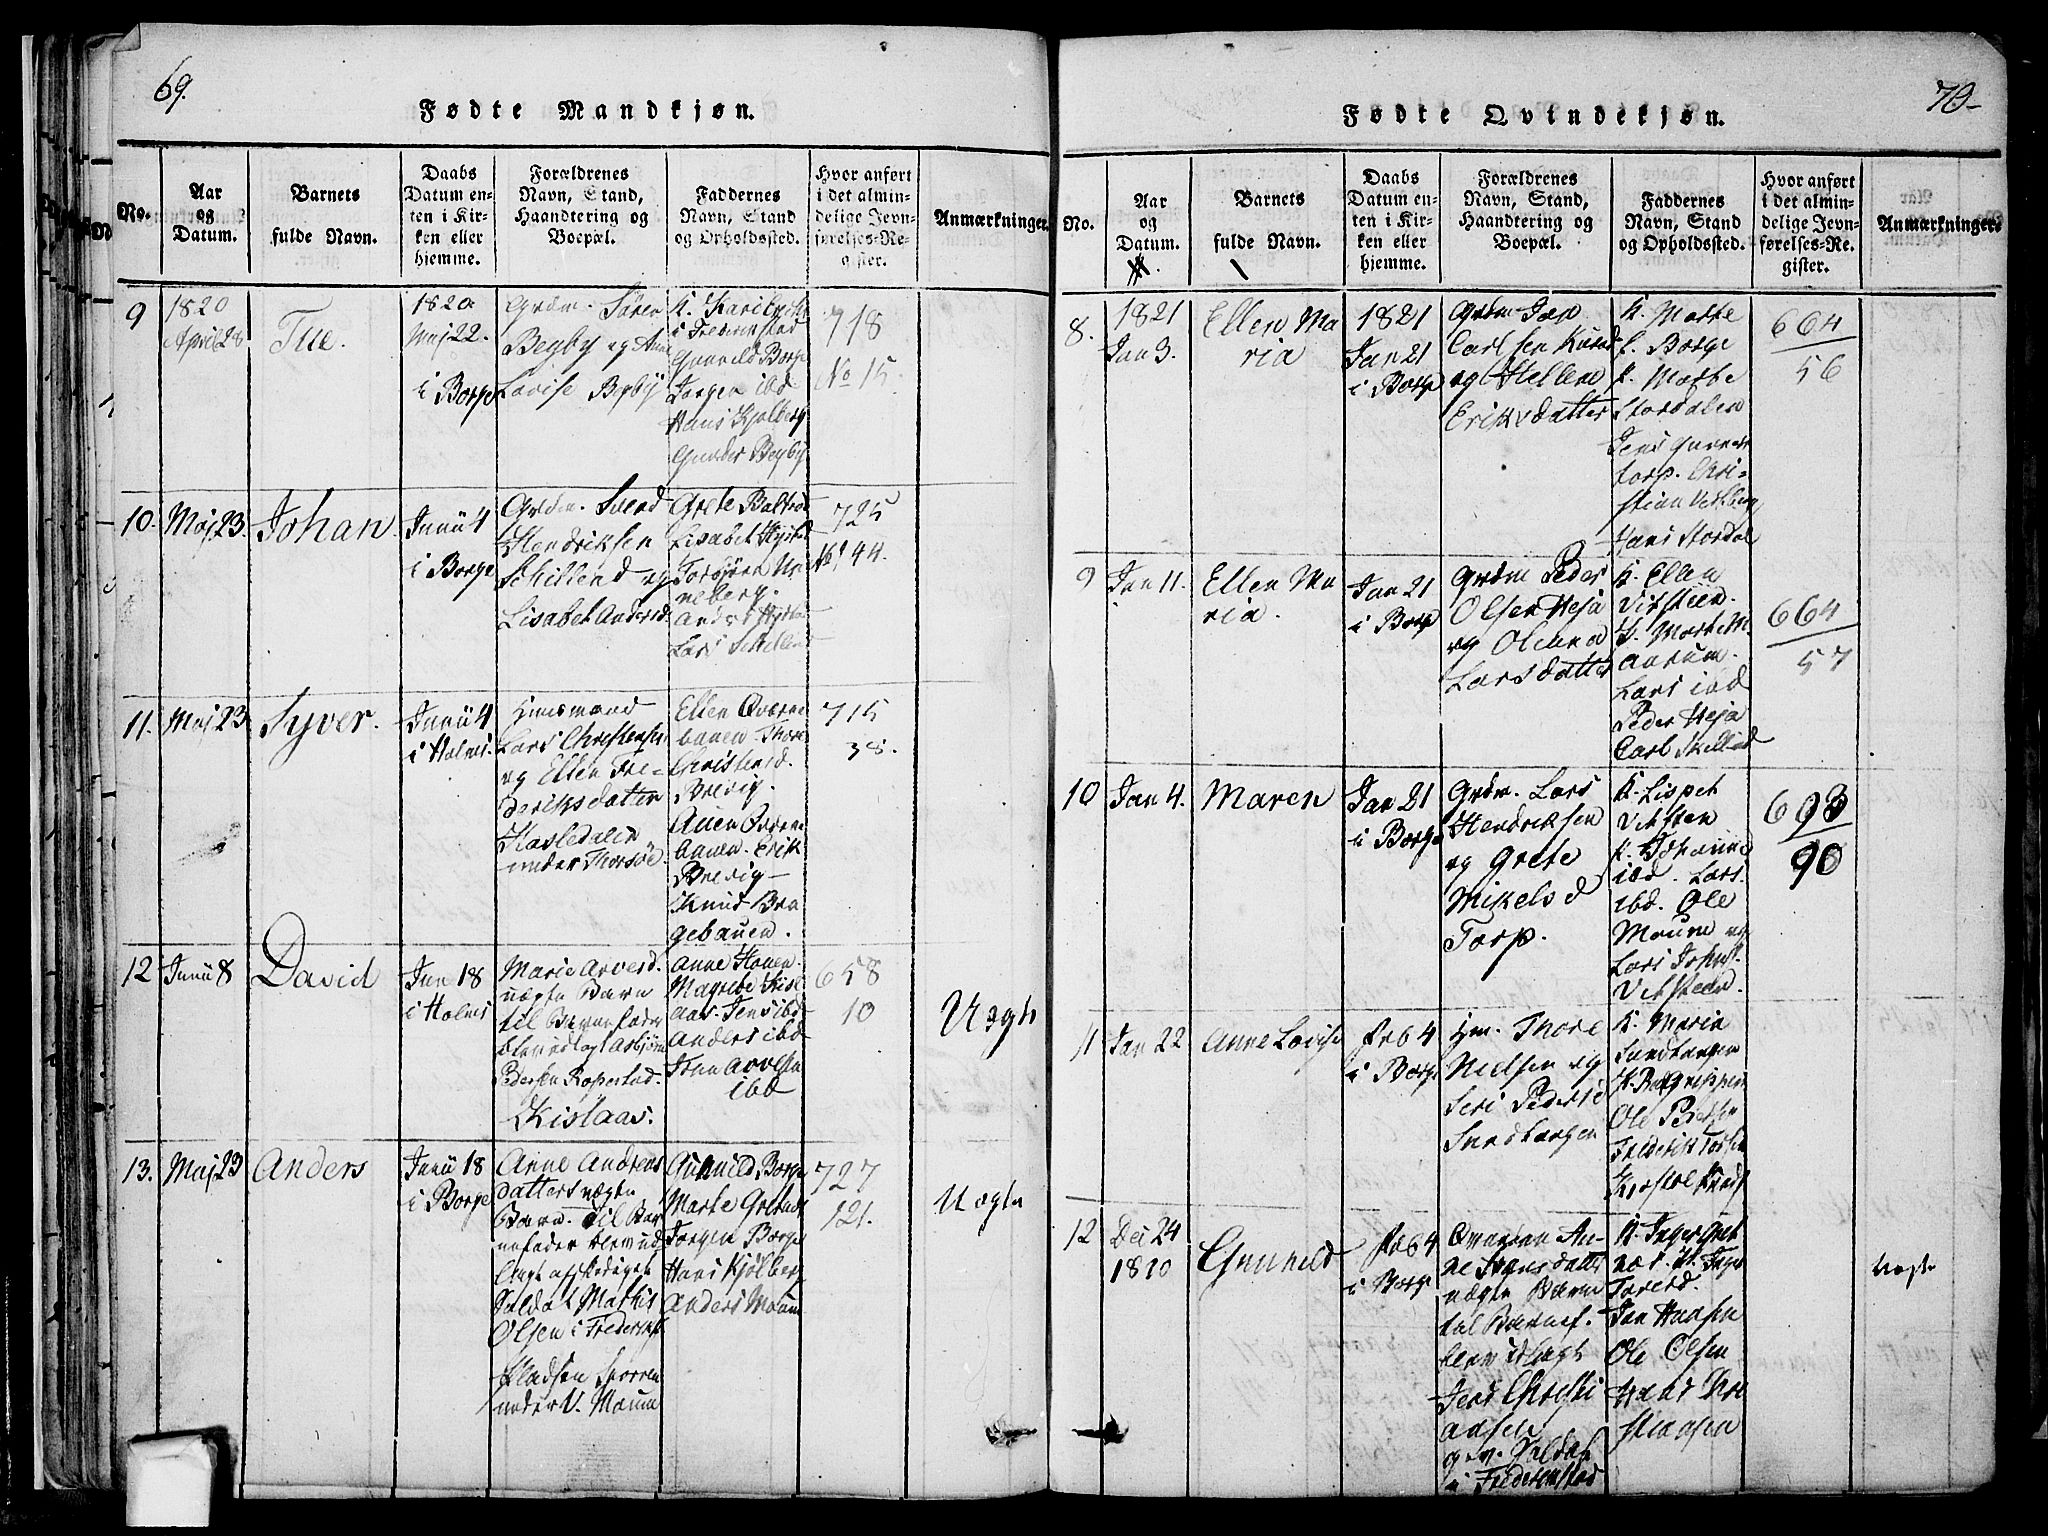 69.
Fødte Mandkjøn.
No.
Aar
og
Datum.
Barnets
fulde Navn.
Daabs
Datum en-
ten i Kir-
ken eller
hjemme.
Forældrenes
Navn, Stand,
Haandtering og
Boepæl.
Faddernes
Navn, Stand
og Opholdssted.
Hvor anført
i det almin-
delige Jevn-
førelses-Re-
gister.
Anmærkninger.
9
1820
April 28
Tue.
1820
Maj 22.
i Borge
Grdm. Sören
Begby og Anne
Lovise Begby
i Fredrikstad
Gunild Borge
Jorgen ibd
Hans Kjolberg
Gunder Begby
718
No 15.
10.
Maj 23.
Johan.
Junii 4
i Borge
Grdm. Svend
Hendriksen
Schillend og
Lisabet Andersd.
Grete
Lisabet
Torbjörn Un
neberg.
Lars Schillend
725
44.
11.
Maj 23
Syver.
Junii 4
i Holmi.
Huusmand
Lars Christensen
og Ellen Fre-
deriksdatter
Hasledalen
under Thorsöe.
Ellen Overne
bauen Thore
Christensd.
Brevig.
Auen Overne
bauen. Erik
Brevig-
Knud Bra
gebauen.
715
38.
12
Junii 8
David
Jun 18
i Holmi
Marie Arvesd.
uægte Barn
til Barnefader
blev udlagt Asbjörn
Pedersen Roperstad.
Kislaas.
Anne Houen.
Magrete Kisl
aas. Jens ibd
Anders ibd
Jonn Arvesen
ibd
658
10
Uægte
13.
Maj 23
Anders
Junii 18
i Borge
Anne Andreas
datters uægte
Barn. Til Bar
nefader blev ud
lagt afskediget
Soldat Mathis
Olsen i Frederikst
Pladsen Sporren
under V. Moum
Gunnild Borge
Marte
Jorgen Borge
Hans Kjölberg
Anders Moum
727
121.
Uægte
70-
Fødte Qvindekjøn.
No.
Aar
og
Datum.
Barnets
fulde Navn.
Daabs
Datum en-
ten i Kir-
ken eller
hjemme.
Forældrenes
Navn, Stand,
Haandtering og
Boepæl.
Faddernes
Navn, Stand
og Opholdssted.
Hvor anført
i det almin-
delige Jevn-
førelses-Re-
gister.
Anmærkninger
8.
1821
Jan 3.
Ellen Ma
ria
1821
Jan 21
i Borge
Grdm
Carlsen
og Hellene
Eriksdatter
K. Marte
L. Borge
K. Marte
Stordalen
Jens
torp. Chri-
stian Vetsberg
Hans Stordal
664
56
9
Jan 11.
Ellen Ma
ria.
Jan 21
i Borge
Grdm Peder
Olsen Heja
og Oleana
Larsdatter
K. Ellen
Vitsteen.
K. Marte M.
Lars ibd
Peder Heja
Carl Skillend
664
57
10
Jan 4.
Maren
Jan 21
i Borge
Grdm. Lars
Hendriksen
og Grete
Mikelsd
Torp.
K. Lispet
Vitsten
K. Johanne
ibd. Lars
ibd. Ole
Moum og
Lars Johns.
Vitsteen.
693
90
11
Jan 22
Anne Lovise
Feb 4
i Borge
Hm. Thore
Nielsen og
Seri Pedersd
Sundlangen
K. Maria
Sundlangen
Ole Pedersen
Frederik
12
Dec 24
1820
Gunnild
Feb 4
i Borge
Qvarine An-
ne Svensdatter
uægte Barn
til Barnef.
blev udlagt
Jens Christi
ansen
g.v. Soldat
i Frederikstad
K. Inger
Jan Hansen
Ole Olsen
Hans Chri
stiansen
uægte